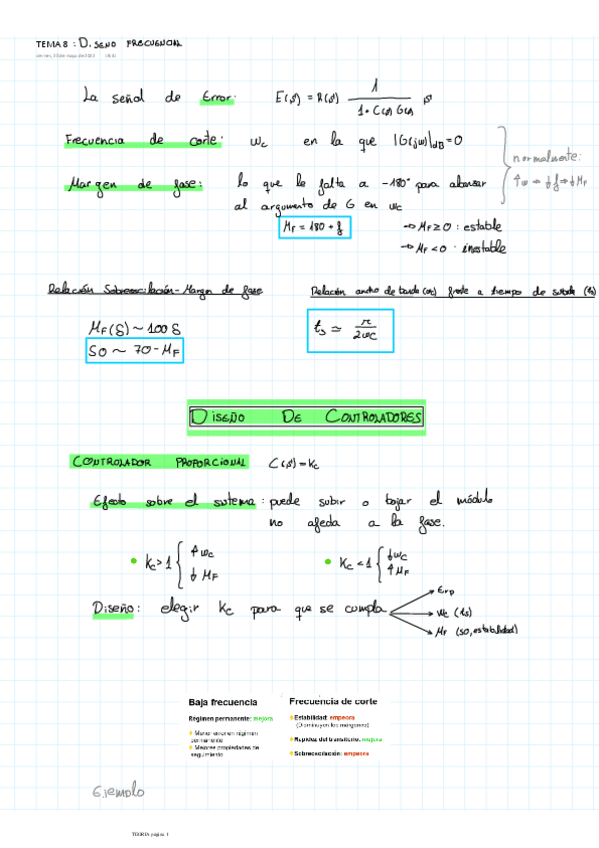 TEMA 8 : DISEÑO FRECUENCIAL
La señal de Error: E(s) = R(s) 1 / 1 + C(s) G(s)
Frecuencia de corte: ωc en la que |G(jω)|dB = 0
normalmente:
↑ω → ↓f → ↓MF
Margen de fase: lo que le falta a -180° para alcanzar
al argumento de G en ωc
MF = 180 + f
→ MF ≥ 0 : estable
→ MF < 0 : inestable
Relación Sobreoscilación - Margen de fase
Relación ancho de banda (ωc) frente a tiempo de subida (ts)
MF(δ) ~ 100 δ
SO ~ 70 - MF
ts ≃ π / 2ωc
DISEÑO DE CONTROLADORES
CONTROLADOR PROPORCIONAL C(s) = Kc
Efecto sobre el sistema : puede subir o bajar el módulo
no afecta a la fase.
• Kc > 1 { ↑ωc ↓MF
• Kc < 1 { ↓ωc ↑MF
Diseño: elegir Kc para que se cumpla
Erp
ωc (ts)
MF (SO, estabilidad)
Baja frecuencia
Régimen permanente: mejora
Menor error en régimen
permanente
Mejores propiedades de
seguimiento
Frecuencia de corte
Estabilidad: empeora
(Disminuyen los márgenes)
Rapidez del transitorio: mejora
Sobreoscilación: empeora
Ejemplo
TEORÍA página 1